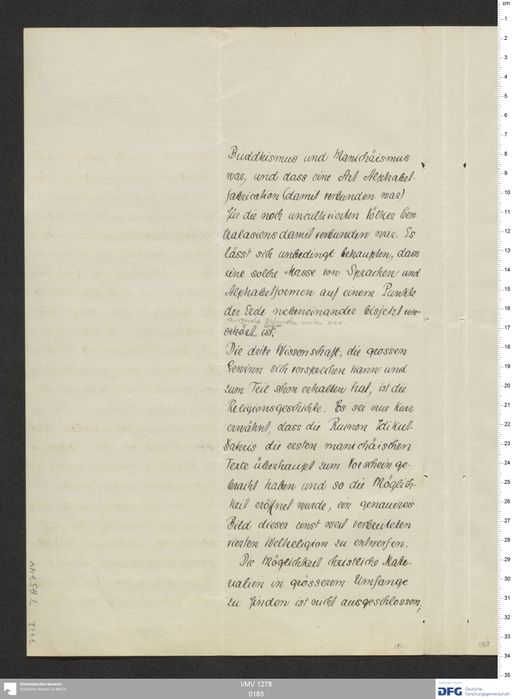 Buddhismus und Manichäismus
war, und dass eine Art Alphabet-
fabrication (damit verbunden war)
für die noch uncultivierten Völker Cen-
tralasiens damit verbunden war. Es
lässt sich unbedingt behaupten, dass
eine solche Masse von Sprachen und
Alphabetformen auf einem Punkte
der Erde nebeneinander bisjetzt uner-
erhört ist.
Die dritte Wissenschaft, die grossen
Gewinn sich versprechen kann und
zum Teil schon erhalten hat, ist die
Religionsgeschichte. Es sei nur kurz
erwähnt, dass die Ruinen Idikut-
Schahris die ersten manichäischen
Texte überhaupt zum Vorschein ge-
bracht haben und so die Möglich-
keit eröffnet wurde, ein genaueres
Bild dieser einst weit verbreiteten
vierten Weltreligion zu entwerfen.
Die Möglichkeit christliche Mate-
rialien in grösserem Umfange
zu finden ist nicht ausgeschlossen,
180
Ethnologisches Museum
Staatliche Museen zu Berlin
I/MV 1278
0183
DFG
Deutsche
Forschungsgemeinschaft